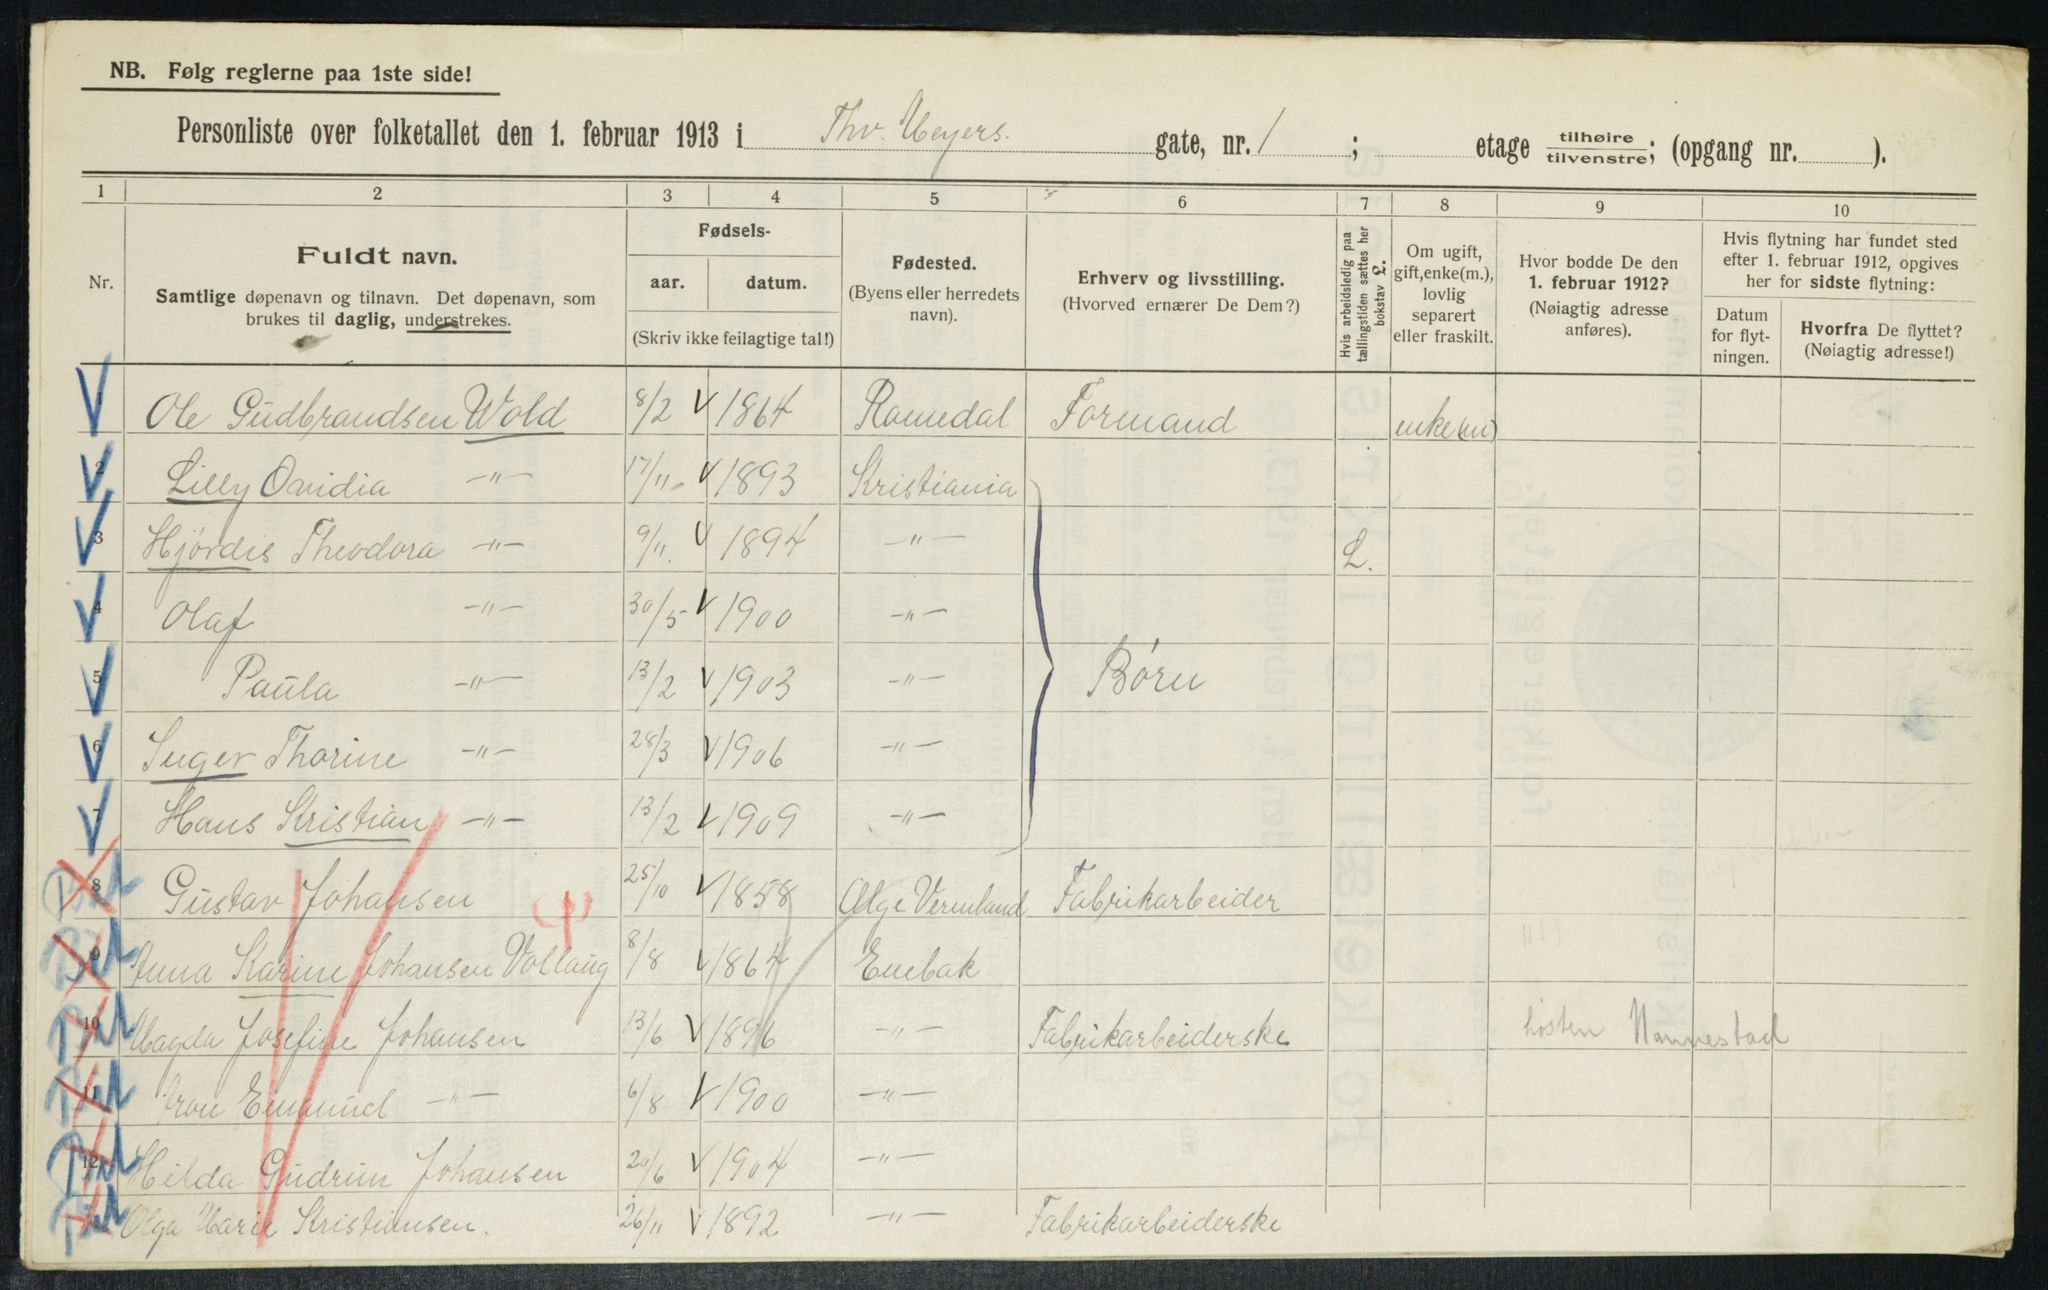 NB. Følg reglerne paa 1ste side!
Personliste over folketallet den 1. februar 1913 i Thv. Meyers. gate, nr. 1 ; etage tilhøire tilvenstre; (opgang nr. ).
1 2 3 4 5 6 7 8 9 10
Nr.
Fuldt navn.
Samtlige døpenavn og tilnavn. Det døpenavn, som
brukes til daglig, understrekes.
Fødsels-
aar. datum.
(Skriv ikke feilagtige tal!)
Fødested.
(Byens eller herredets
navn).
Erhverv og livsstilling.
(Hvorved ernærer De Dem?)
Hvis arbeidsledig paa
tællingstiden sættes her
bokstav L.
Om ugift,
gift, enke(m.),
lovlig
separert
eller fraskilt.
Hvor bodde De den
1. februar 1912?
(Nøiagtig adresse
anføres).
Hvis flytning har fundet sted
efter 1. februar 1912, opgives
her for sidste flytning:
Datum
for flyt-
ningen.
Hvorfra De flyttet?
(Nøiagtig adresse!)
1 Ole Gudbrandsen Wold 8/2 V 1864 Romedal Formand enke(m)
2 Lilly Ovidia -"- 17/11 V 1893 Kristiania
3 Hjördis Theodora -"- 9/11. V 1894 -"- L.
4 Olaf -"- 30/5 V 1900 -"-
5 Paula -"- 13/2 V 1903 -"- Børn
6 Inger Thorine -"- 28/3 V 1906 -"-
7 Hans Kristian -"- 13/2 V 1909 -"-
8 Gustav Johansen 25/10 V 1858 Alge Vermland Fabrikarbeider
9 Anna Karine Johansen Vollaug 8/8 V 1864 Enebak
10 Magda Josefine Johansen 13/6 V 1896 -"- Fabrikarbeiderske høsten Nannestad
11 Aron Emanuel -"- 6/8 V 1900 -"-
12 Hilda Gudrun Johansen 20/6 V 1904 -"-
Olga Marie Kristiansen. 26/11 V 1892 -"- Fabrikarbeiderske